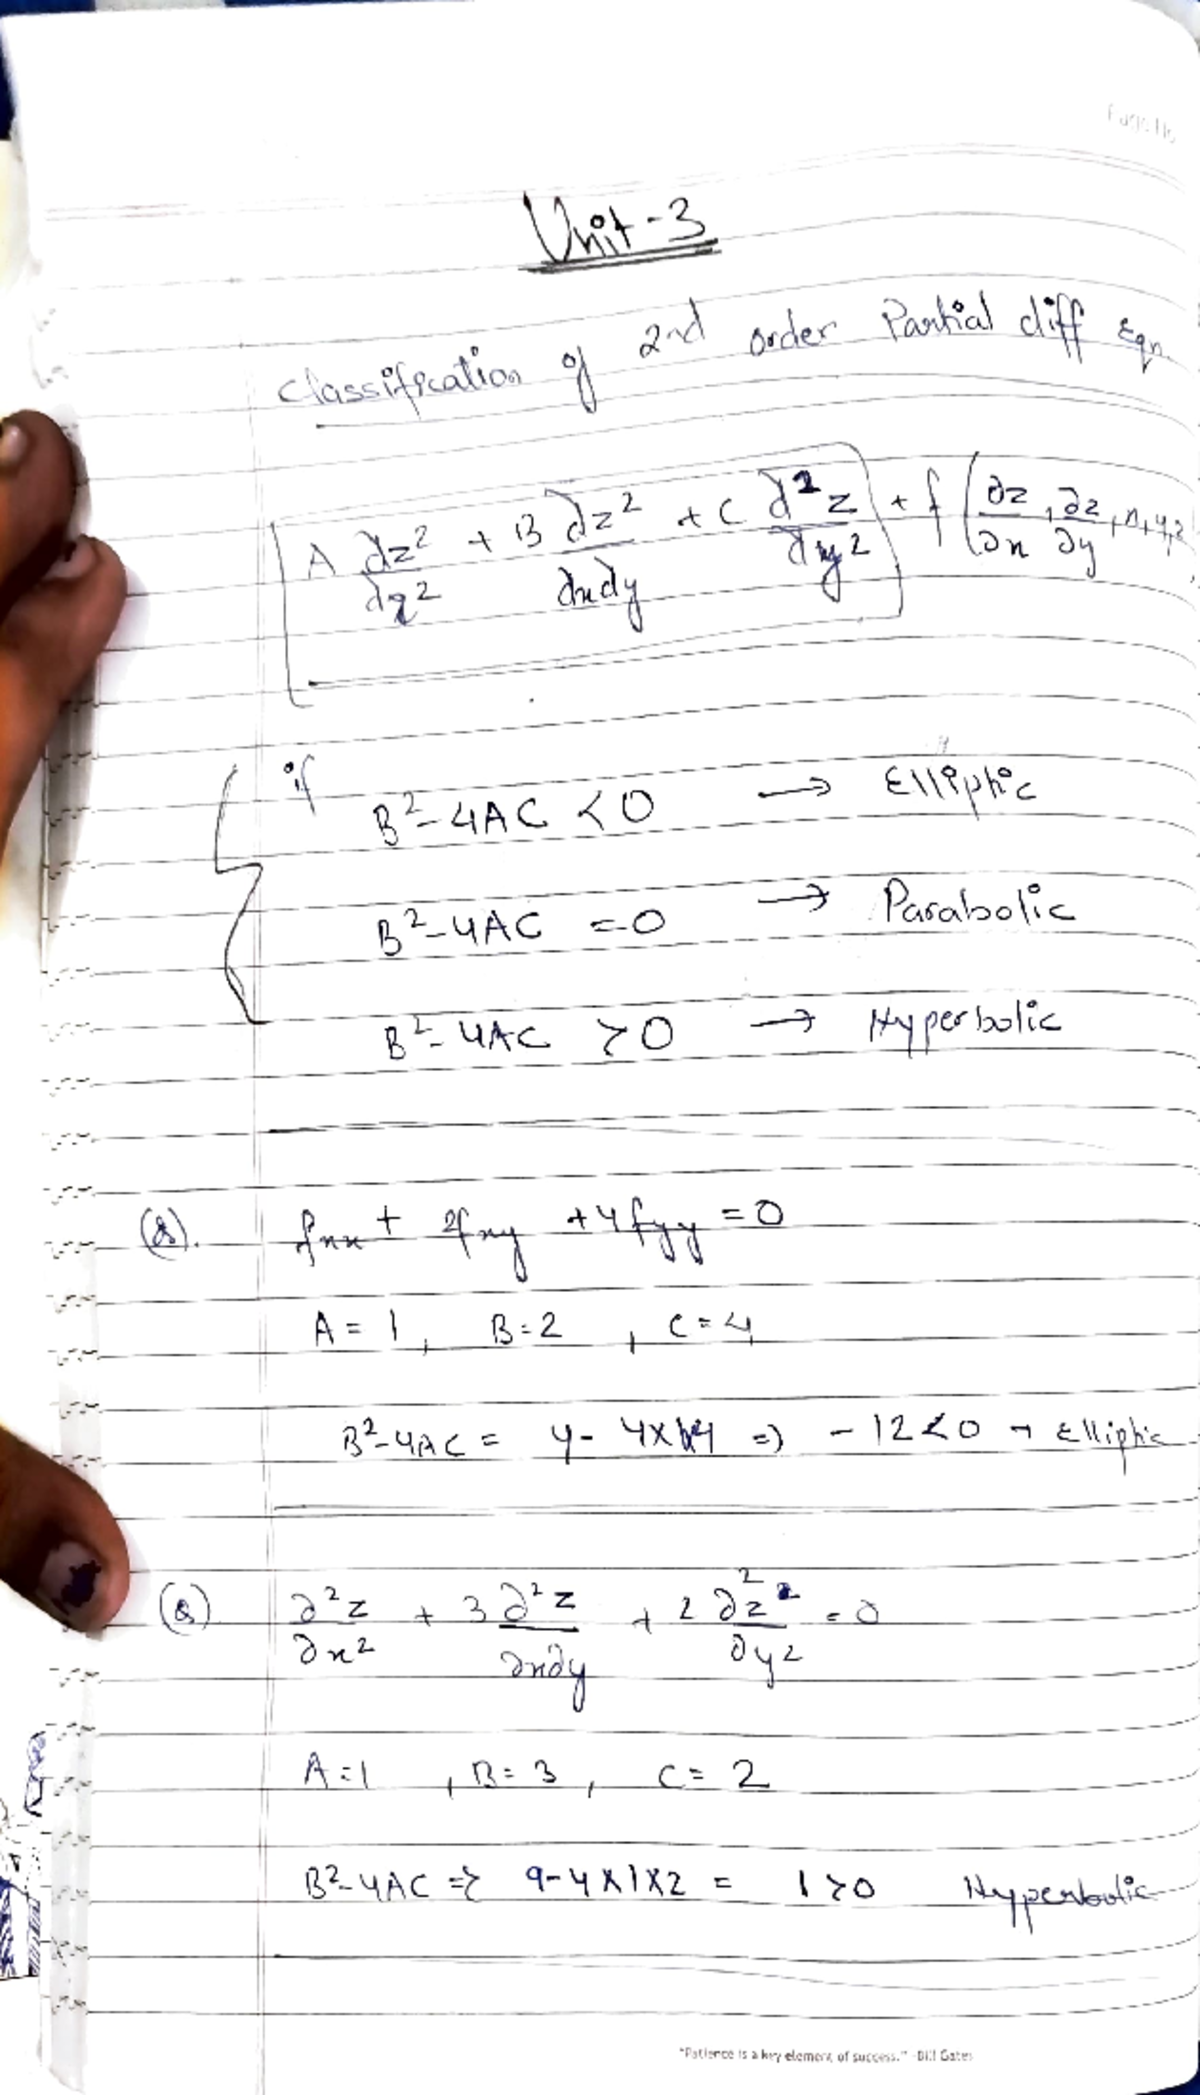 Page No
Unit-3
Classification of 2nd order Partial diff Eqn.
A ∂z²/∂x² + B ∂z²/∂x∂y + C ∂²z/∂y² + f (∂z/∂x, ∂z/∂y, x, y, z
if B²-4AC < 0 → Elliptic
B²-4AC = 0 → Parabolic
B²-4AC > 0 → Hyperbolic
(Q). fxx + 2fxy + 4fyy = 0
A = 1, B = 2, C = 4
B²-4AC = 4 - 4x1x4 => -12 < 0 → Elliptic
(Q) ∂²z/∂x² + 3 ∂²z/∂x∂y + 2 ∂²z/∂y² = 0
A = 1, B = 3, C = 2
B²-4AC => 9-4x1x2 = 1 > 0 Hyperbolic
"Patience is a key element of success." -Bill Gates